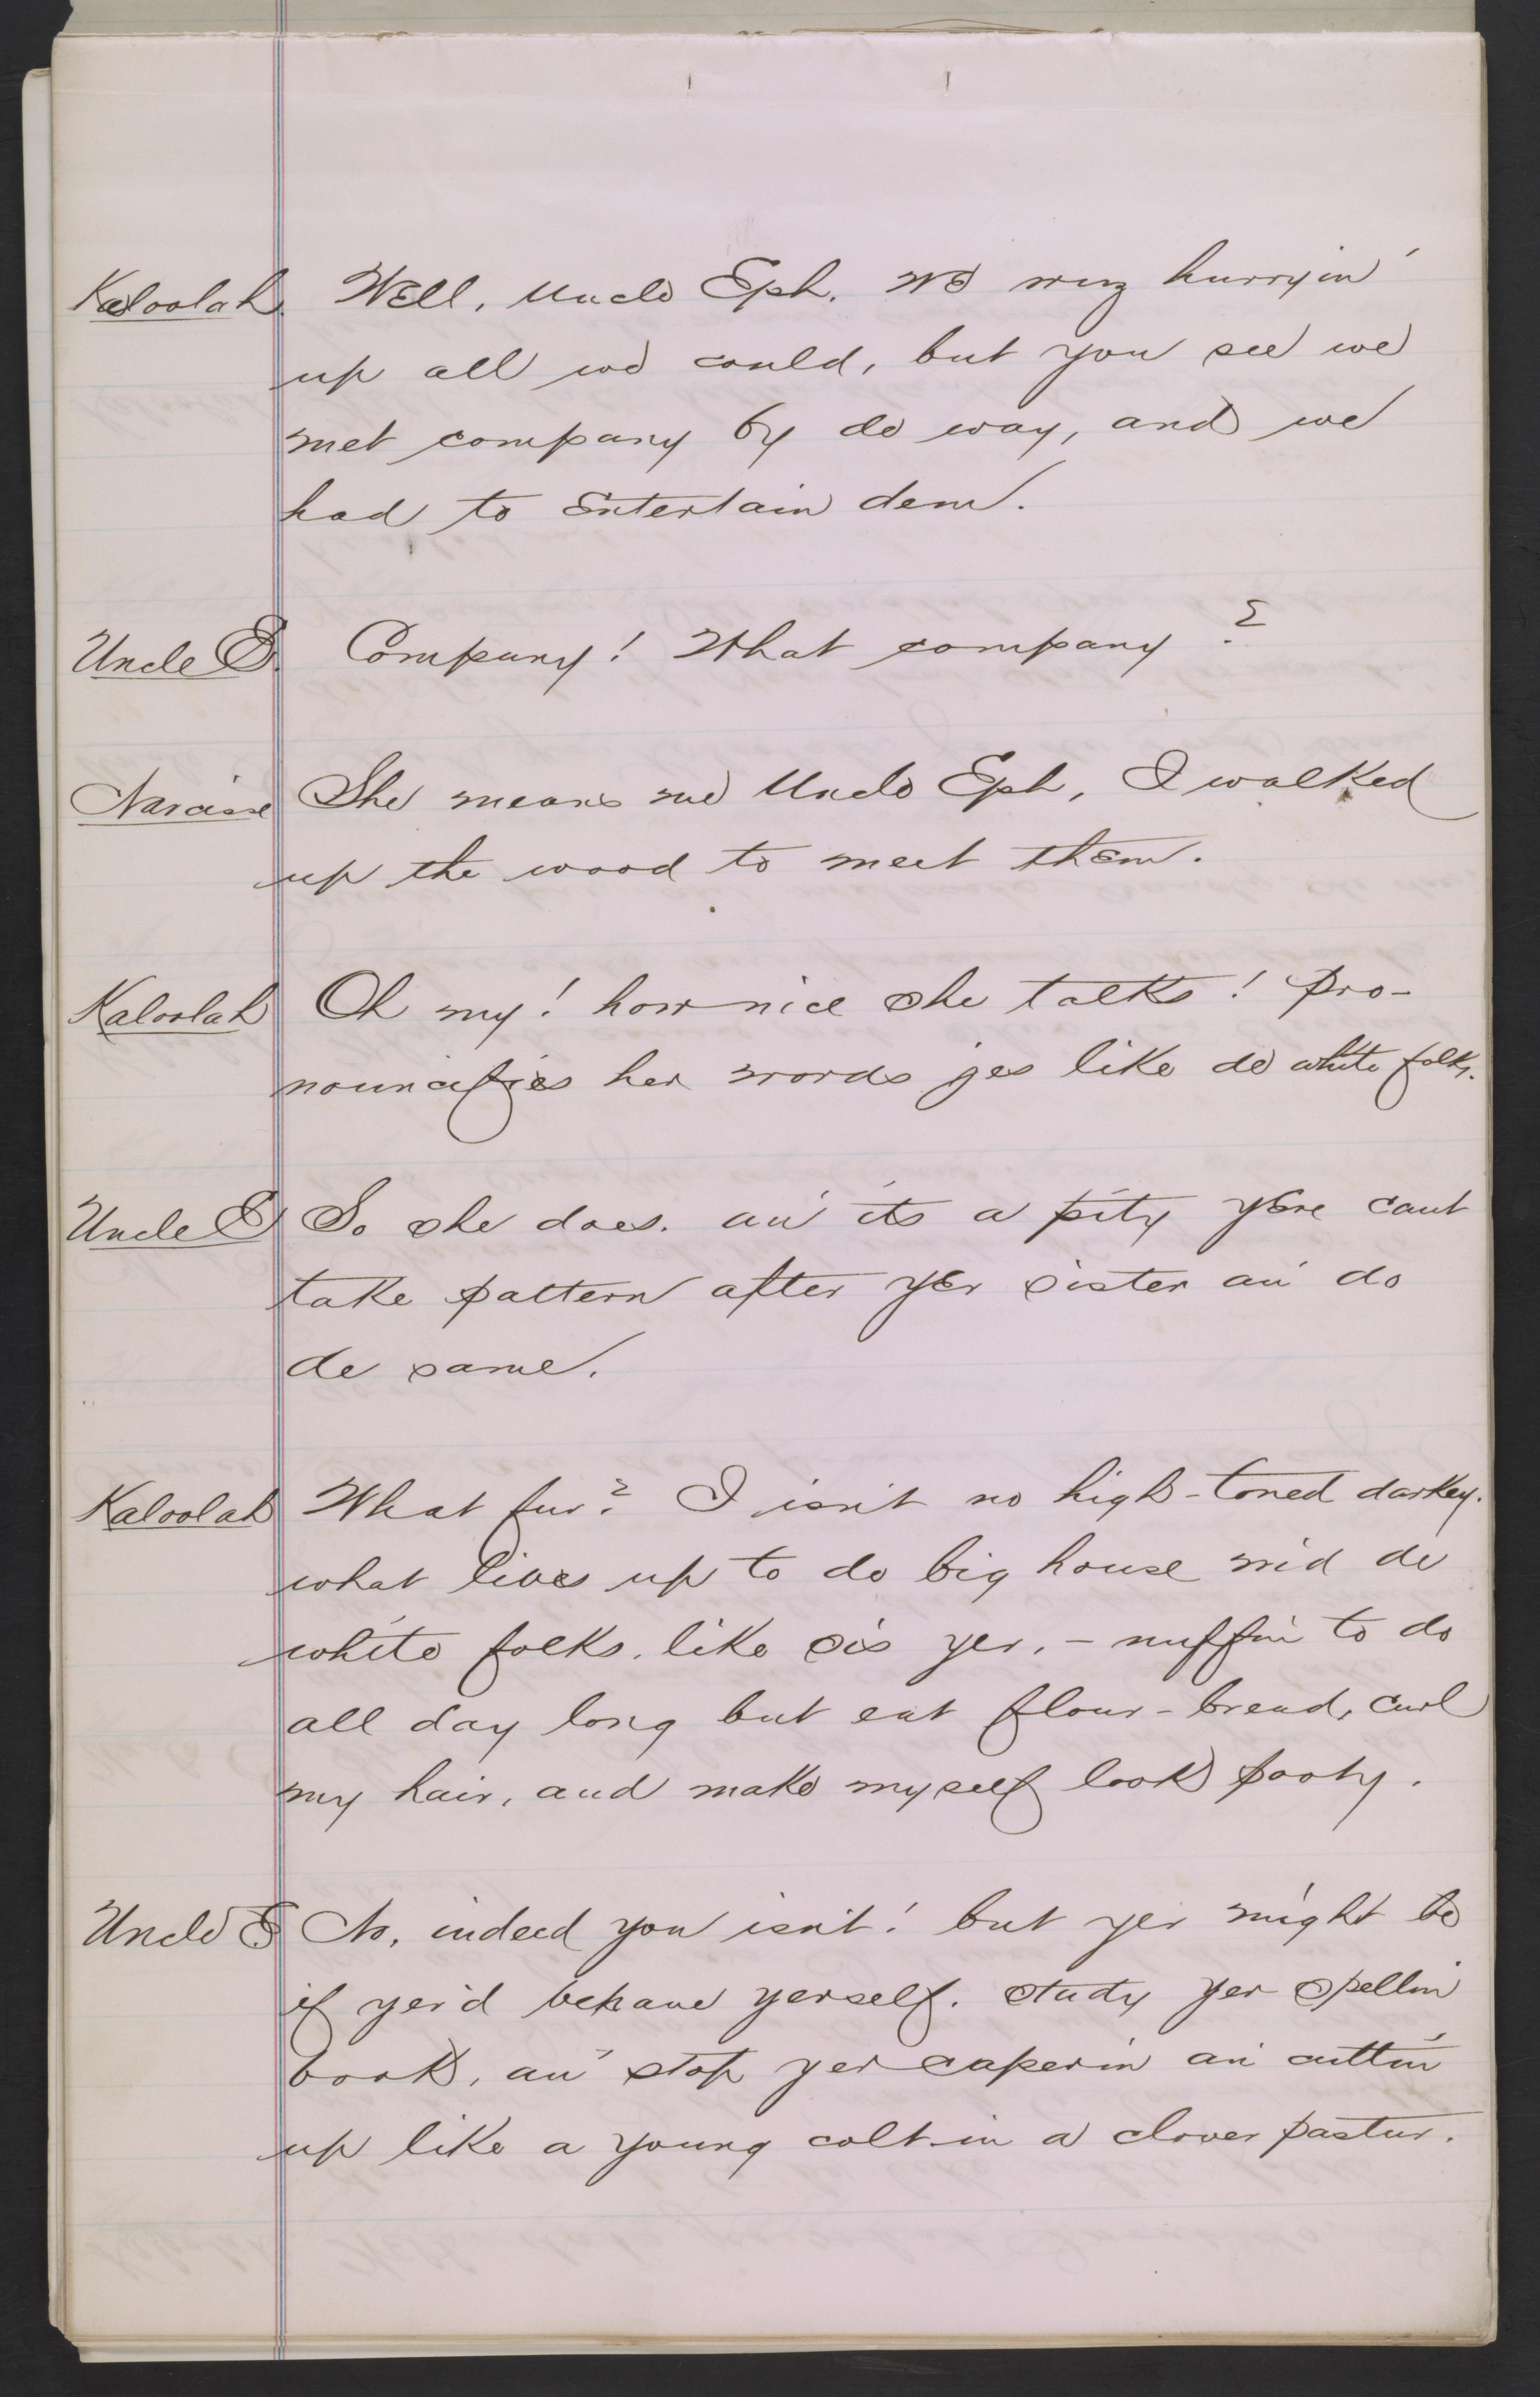 Kaloolah. Well, Uncle Eph. we wuz hurryin'
up all we could, but you see we
met company by de way, and we
had to entertain dem.
Uncle E. Company! What company?
Narcisse She means me Uncle Eph, I walked
up the wood to meet them.
Kaloolah Oh my! how nice she talks! Pro-
nouncifies her words jes like de white folks.
Uncle E So she does. an' its a pity yere cant
take pattern after yer sister an' do
de same.
Kaloolah What fur? I isn't no high-toned darkey.
what lives up to de big house wid de
white folks, like sis yer, - nuffin to do
all day long but eat flour-bread, curl
my hair, and make myself look pooty.
Uncle E No, indeed you isn't! but yer might be
if yer'd behave yerself. study yer spellin'
book, an' stop yer caperin an' cuttin'
up like a young colt in a clover pastur.